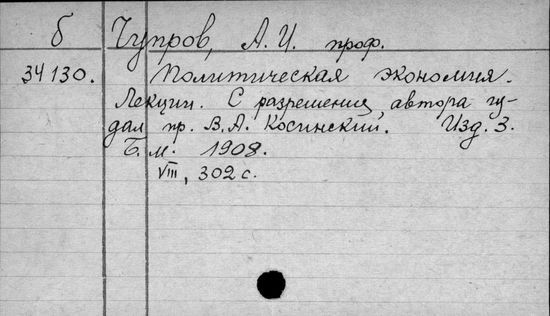 б Чупров, А.И. проф.
34130. Политическая экономия.
Лекции. С разрешения автора
дал пр. В.А. Косинский. Изд. 3.
Б.м. 1908.
VIII, 302 с.